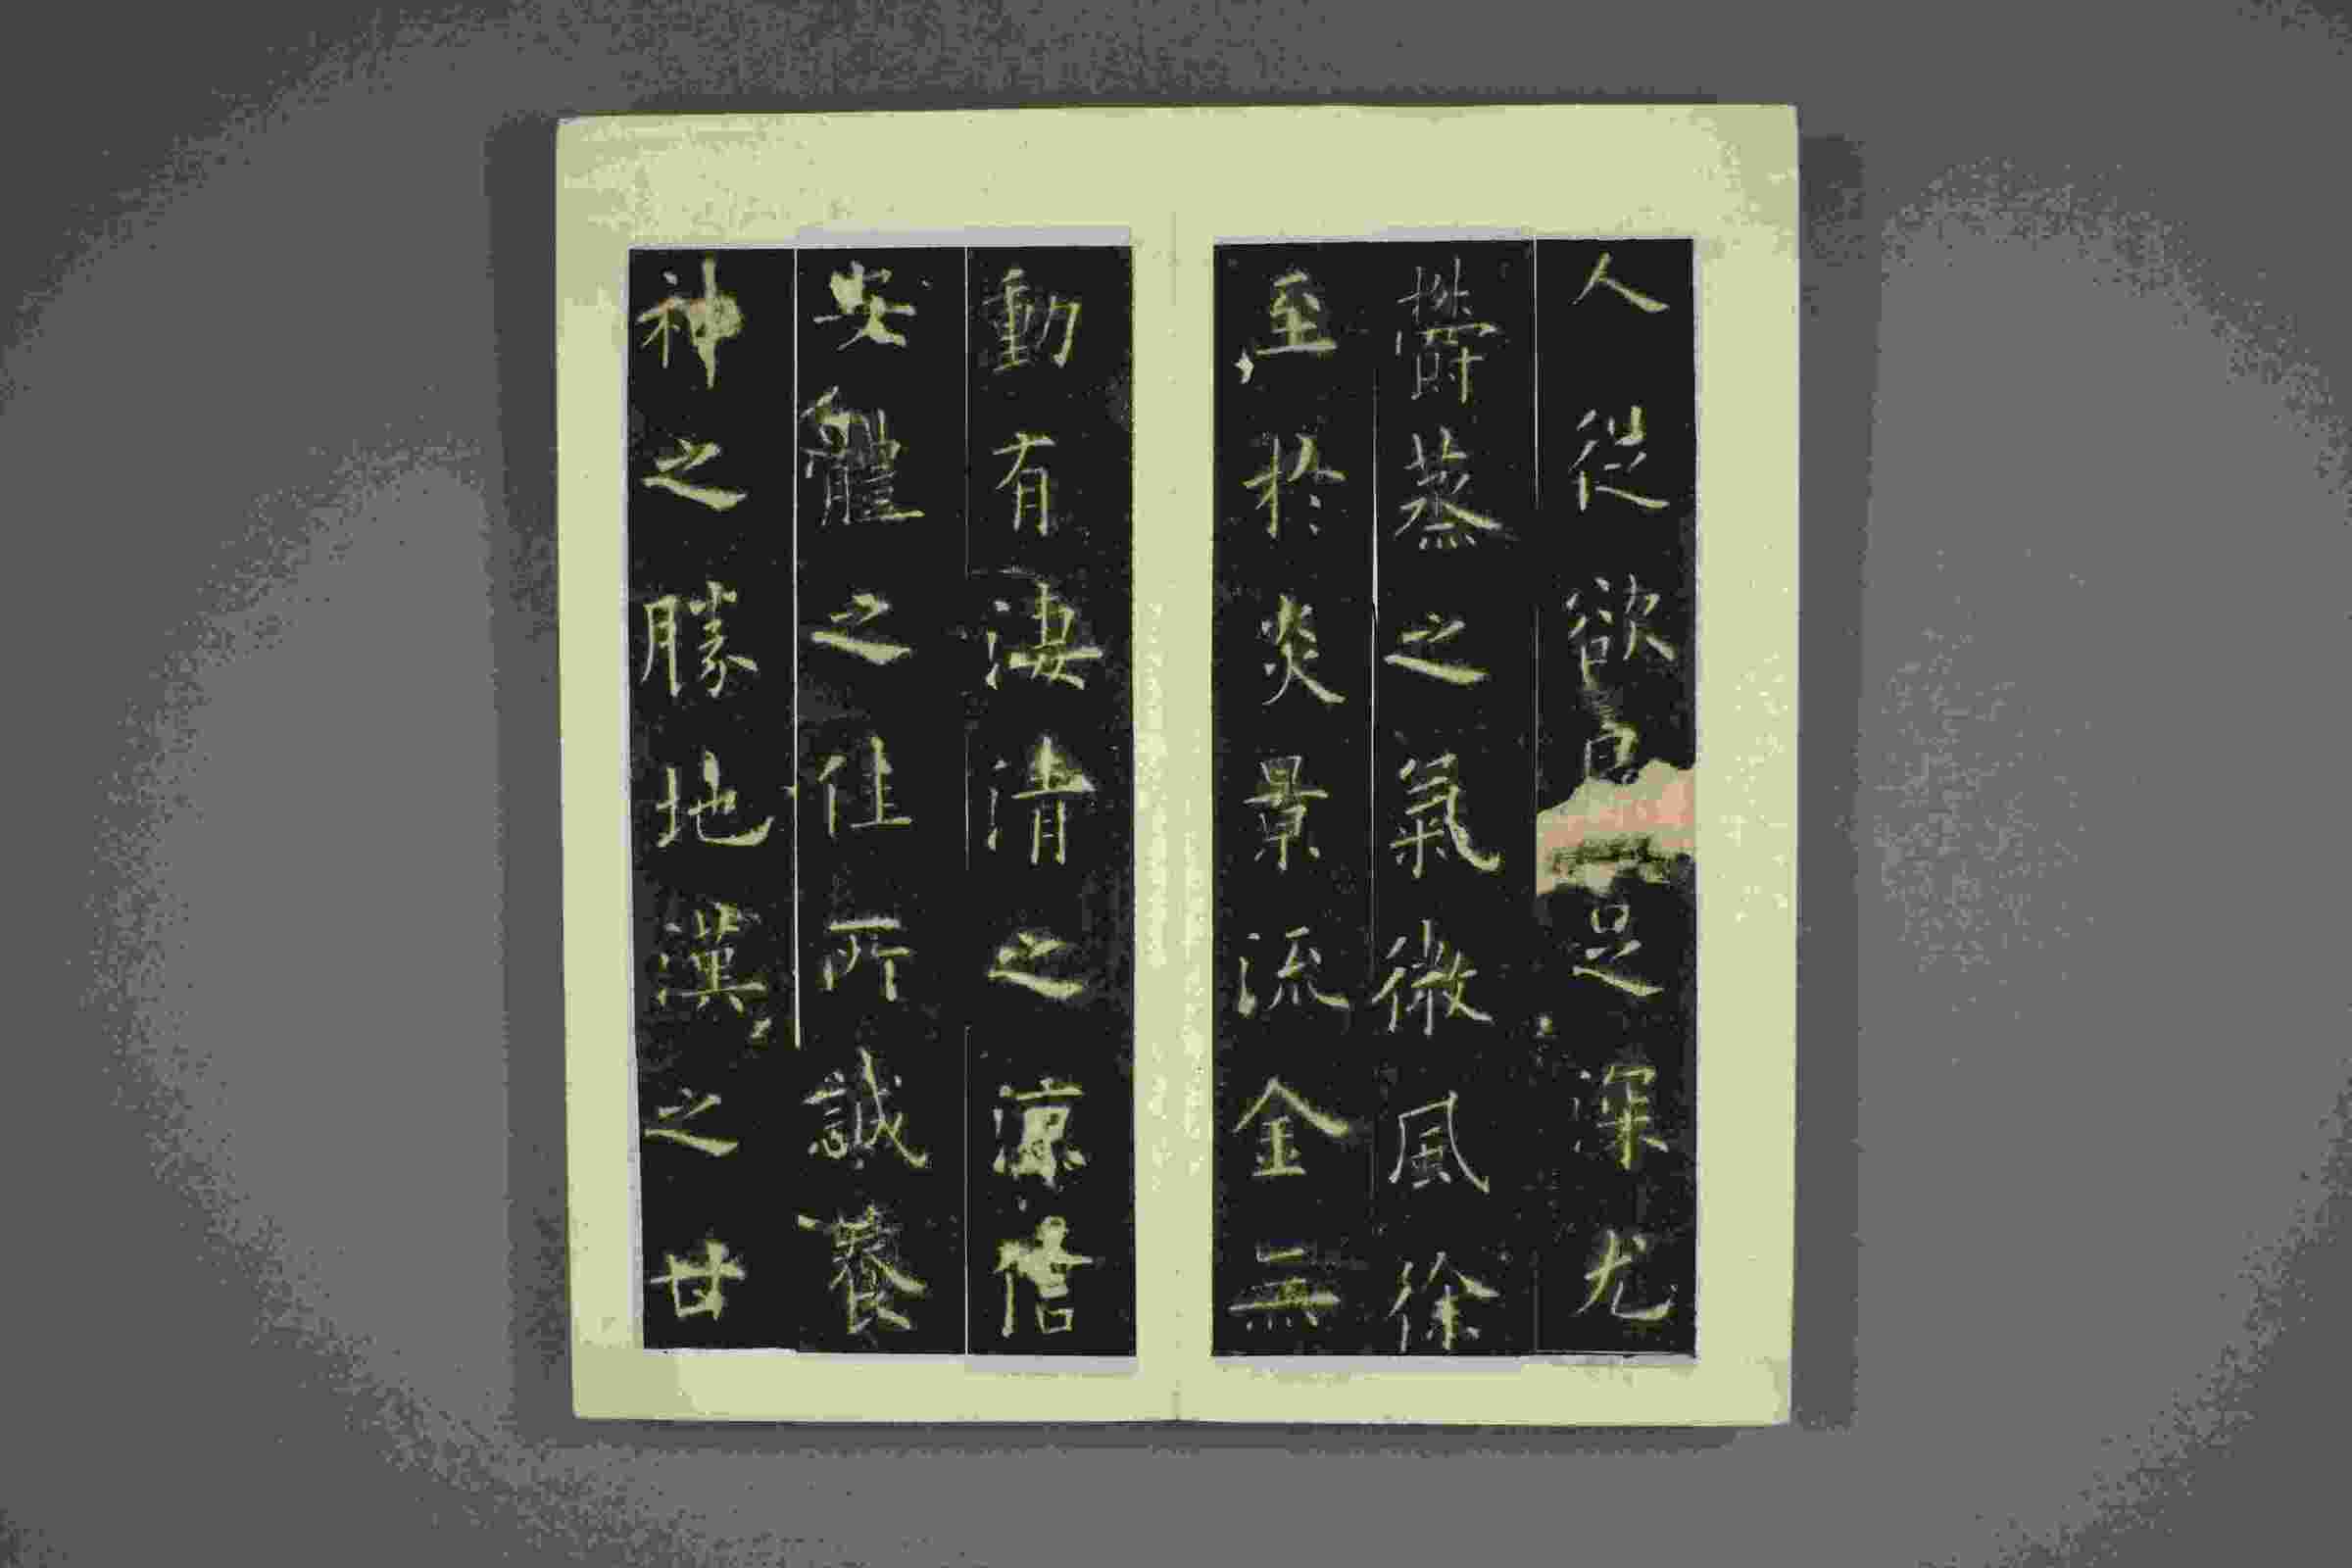 人從欲良足深尤
欝蒸之氣微風徐
至於炎景流金無
動有淒清之涼信
安體之佳所誠養
神之勝地漢之甘